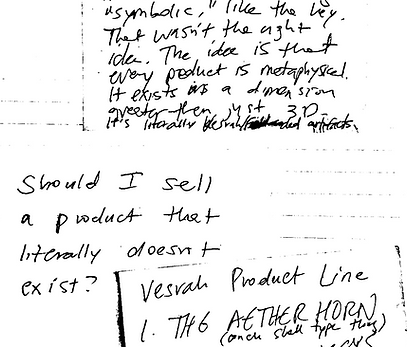 "symbolic," like the key.
That wasn't the right
idea. The idea is that
every product is metaphysical.
It exists in a dimension
greater then just 3D.
It's literally artifacts.
Should I sell
a product that
literally doesn't
exist?
Vesrah Product Line
1. THE AETHER HORN
(conch shell type thing)